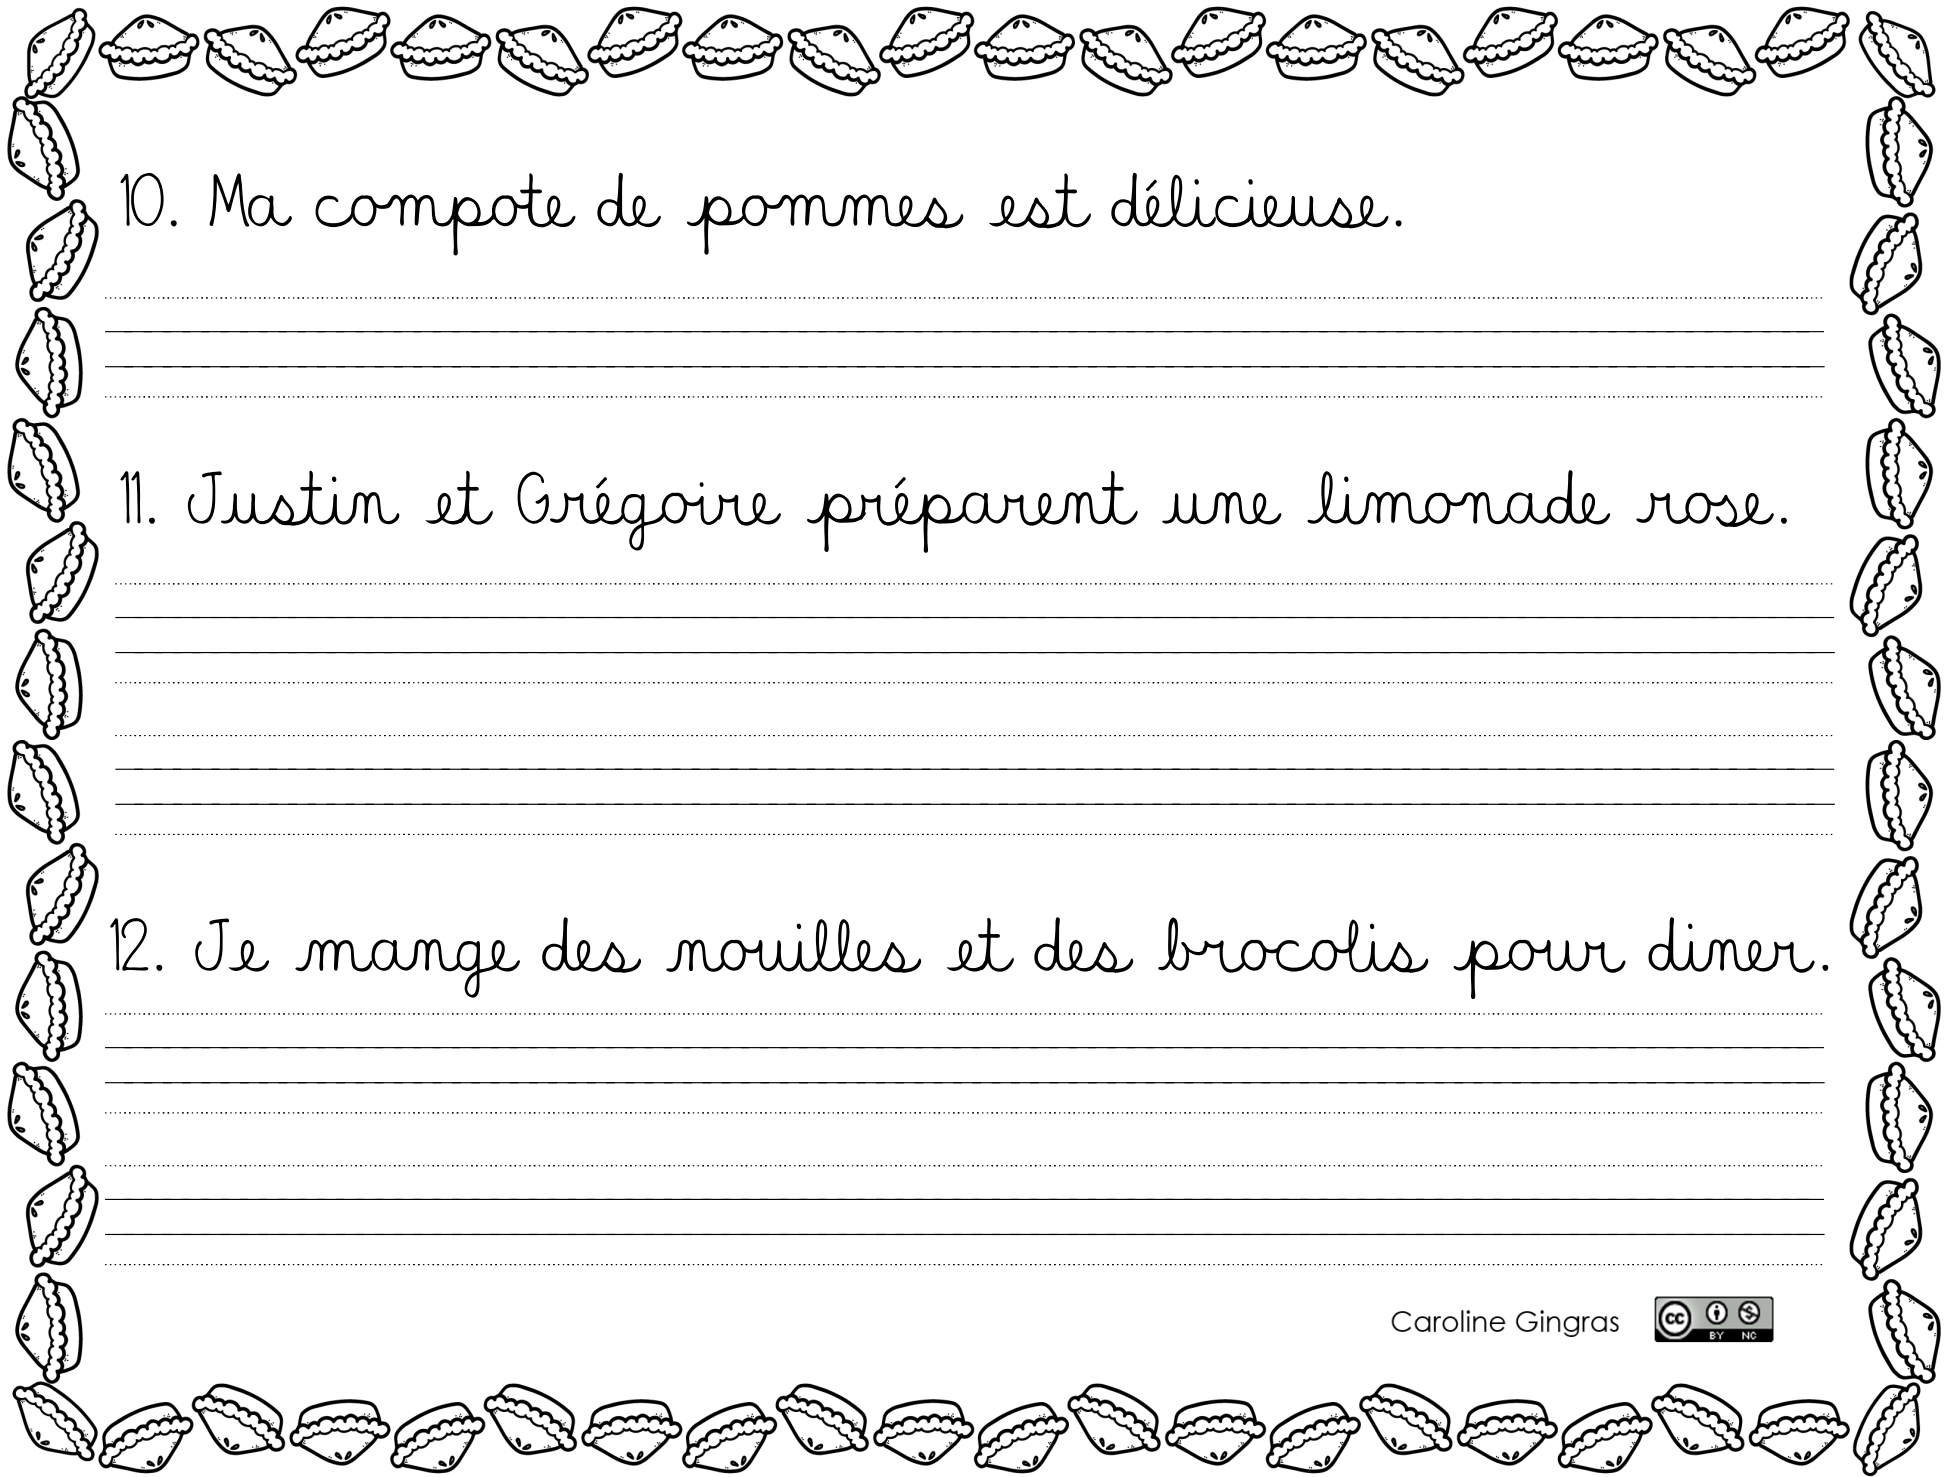 10. Ma compote de pommes est délicieuse.
11. Justin et Grégoire préparent une limonade rose.
12. Je mange des nouilles et des brocolis pour diner.
Caroline Gingras
cc BY NC